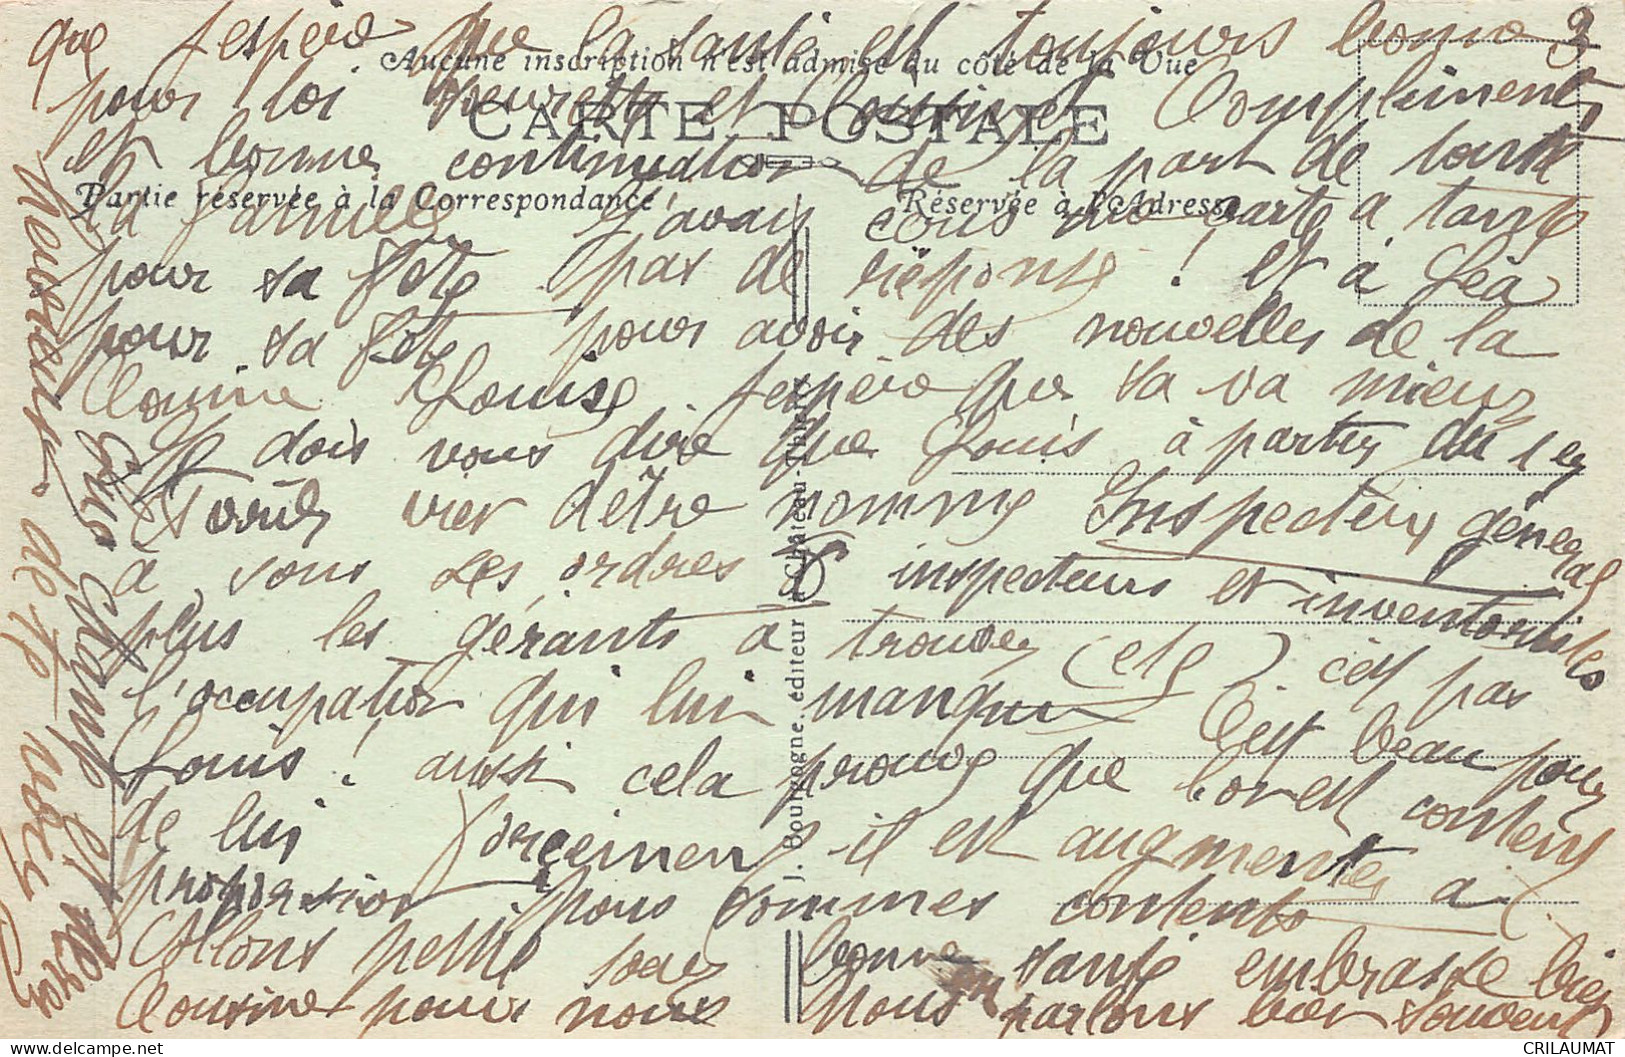 que j'espère que la santé est toujours bonne
pour toi et Compliments
et bonne continuation de la part de toute
la famille J'avais carte à tante
pour sa fête pas de réponse ! et à Léa
pour sa fête pour avoir des nouvelles de la
Cousine Louise J'espère que sa va mieux
Je dois vous dire que Louis à partir du 1er
d'être nommé Inspecteur général
à sous ses ordres 8 inspecteurs et inventoristes
plus les gérants à trouver (etc) c'est pas
l'occupation qui lui manque C'est beau pour
Louis ! aussi cela prouve que l'on est content
de lui forcément il est augmenté à
proportion nous sommes contents
Allons petite soeur bonne santé embrasse bien
Cousine pour nous Nous parlons bien souvent
de te voir
2
Aucune inscription n'est admise du côté de la Vue
CARTE POSTALE
Partie réservée à la Correspondance
Réservée à l'Adresse
J. Bourgogne, éditeur, Château-Thierry
CRILAUMAT